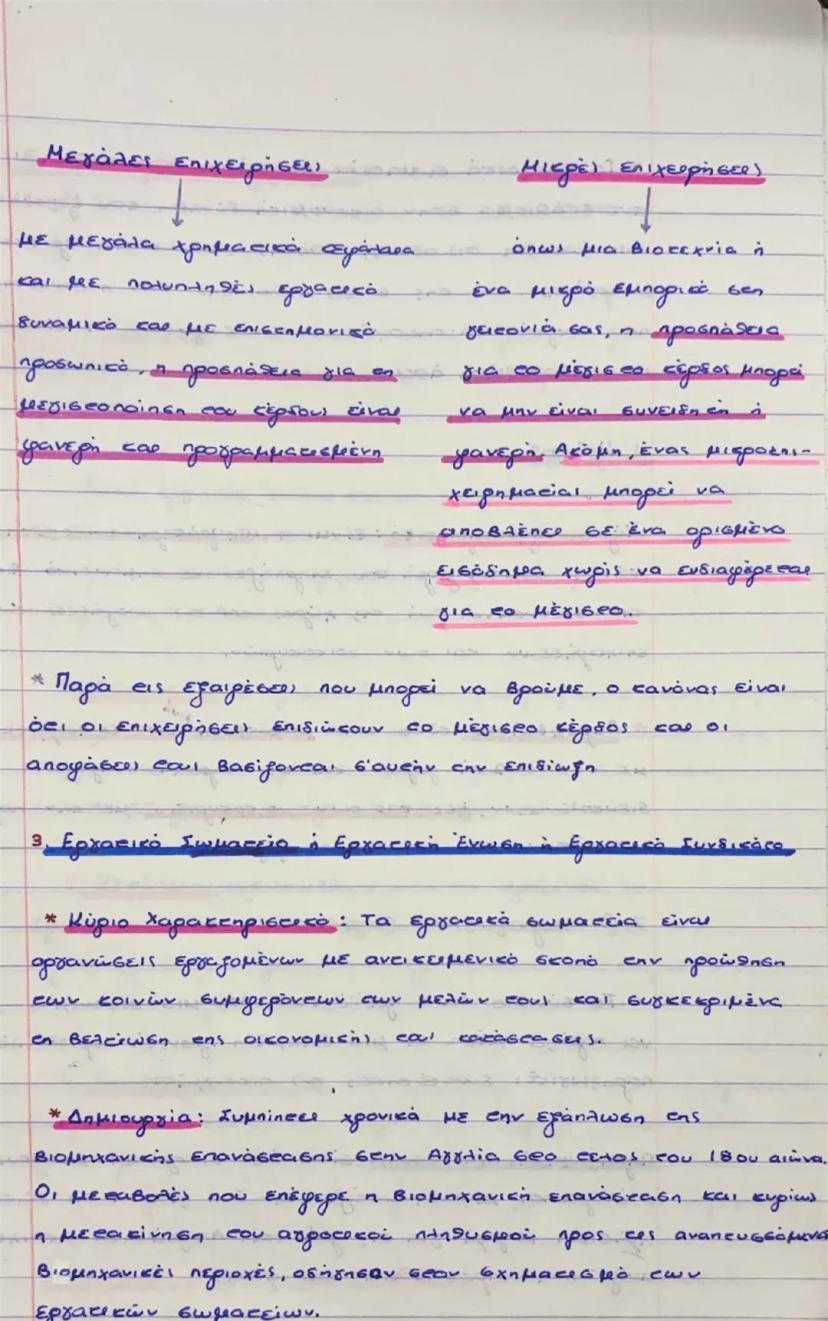 Μεγάλες επιχειρήσεις
με μεγάλα χρηματικά κεφάλαια
και με πολυπληθές εργατικό
δυναμικό και με επιστημονικό
προσωπικό, η προσπάθεια για τη
μεγιστοποίηση του κέρδους είναι
φανερή και προγραμματισμένη
Μικρές επιχειρήσεις
όπως μια βιοτεχνία ή
ένα μικρό εμπορικό στη
γειτονιά σας, η προσπάθεια
για το μέγιστο κέρδος μπορεί
να μην είναι συνειδητή ή
φανερή. Ακόμη, ένας μικροεπι-
χειρηματίας μπορεί να
αποβλέπει σε ένα ορισμένο
εισόδημα χωρίς να ενδιαφέρεται
για το μέγιστο.
* Παρά τις εξαιρέσεις που μπορεί να βρούμε, ο κανόνας είναι
ότι οι επιχειρήσεις επιδιώκουν το μέγιστο κέρδος και οι
αποφάσεις τους βασίζονται σ'αυτήν την επιδίωξη
3. Εργατικό Σωματείο ή Εργατική Ένωση ή Εργατικό Συνδικάτο
* Κύριο Χαρακτηριστικό: Τα εργατικά σωματεία είναι
οργανώσεις εργαζομένων με αντικειμενικό σκοπό την προώθηση
των κοινών συμφερόντων των μελών τους και συγκεκριμένα
τη βελτίωση της οικονομικής τους κατάστασης.
* Δημιουργία: Συμπίπτει χρονικά με την εξάπλωση της
βιομηχανικής επανάστασης στην Αγγλία στο τέλος του 18ου αιώνα.
Οι μεταβολές που επέφερε η βιομηχανική επανάσταση και κυρίως
η μετακίνηση του αγροτικού πληθυσμού προς τις αναπτυσσόμενες
βιομηχανικές περιοχές, οδήγησαν στον σχηματισμό των
εργατικών σωματείων.